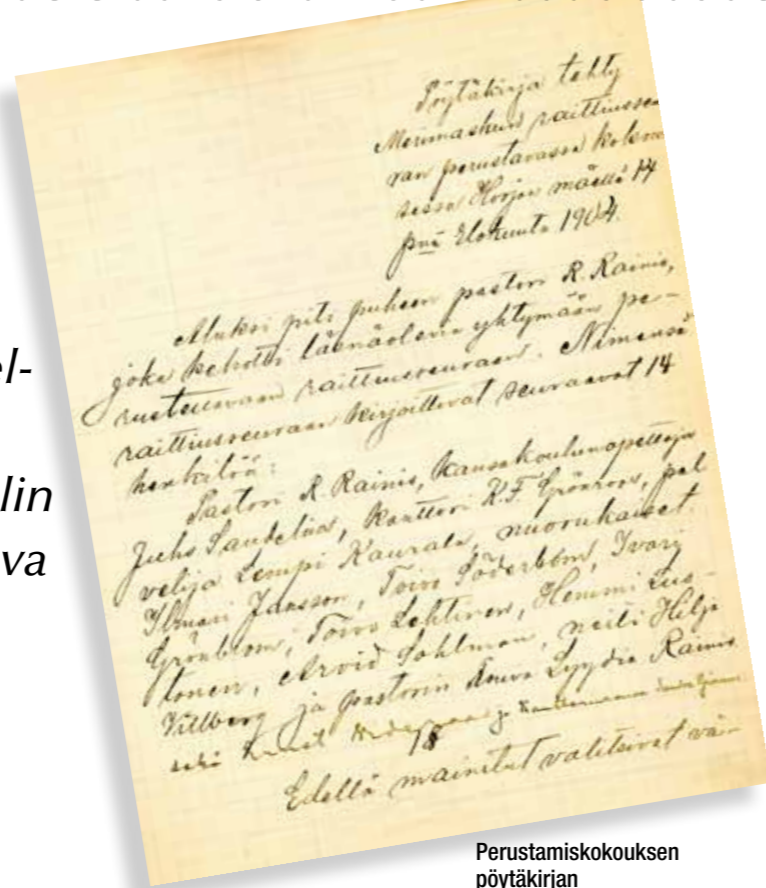 el-
lin
va
Pöytäkirja tehty
Merimaskun raittiusseu
ran perustavassa kokouk
sessa Horjan mäellä 14
pnä Elokuuta 1904.
Aluksi piti puheen pastori R. Rainio,
joka kehotti läsnäolevia yhtymään pe-
rustettavaan raittiusseuraan. Nimensä
raittiusseuraan kirjoittivat seuraavat 14
henkilöä:
Pastori R. Rainio, kansakoulunopettaja
Juho Sandelin, kanttori K.F. Grönroos, pal
velija Lempi Kaurala, nuorukaiset
Ilmari Jansson, Toivo Söderblom, Ivari
Grönblom, Toivo Lehtinen, Hemmi Lus-
tonen, Arvid Sohlman, neiti Hilja
Villberg ja pastorin rouva Lyydia Rainio
sekä
18
Edellä mainitut valitsivat vä-
Perustamiskokouksen
pöytäkirjan